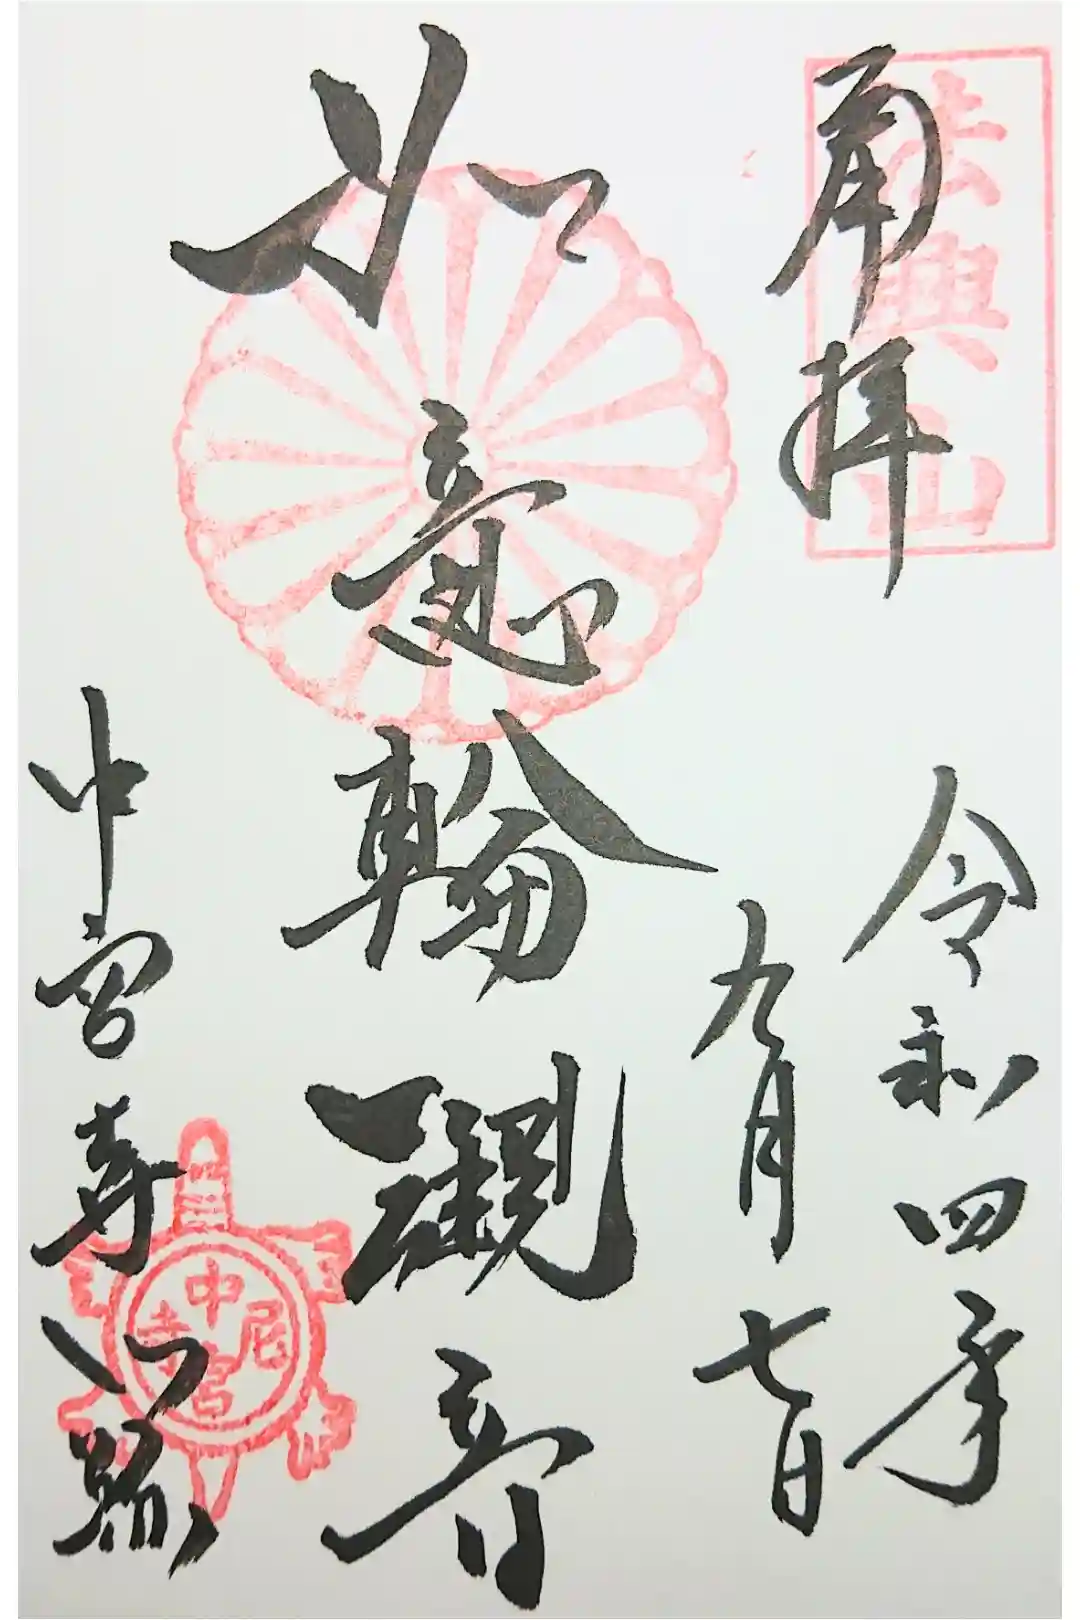 法興山
再拝
令和四年
九月七日
如意輪観音
中宮寺門跡
中宮尼寺